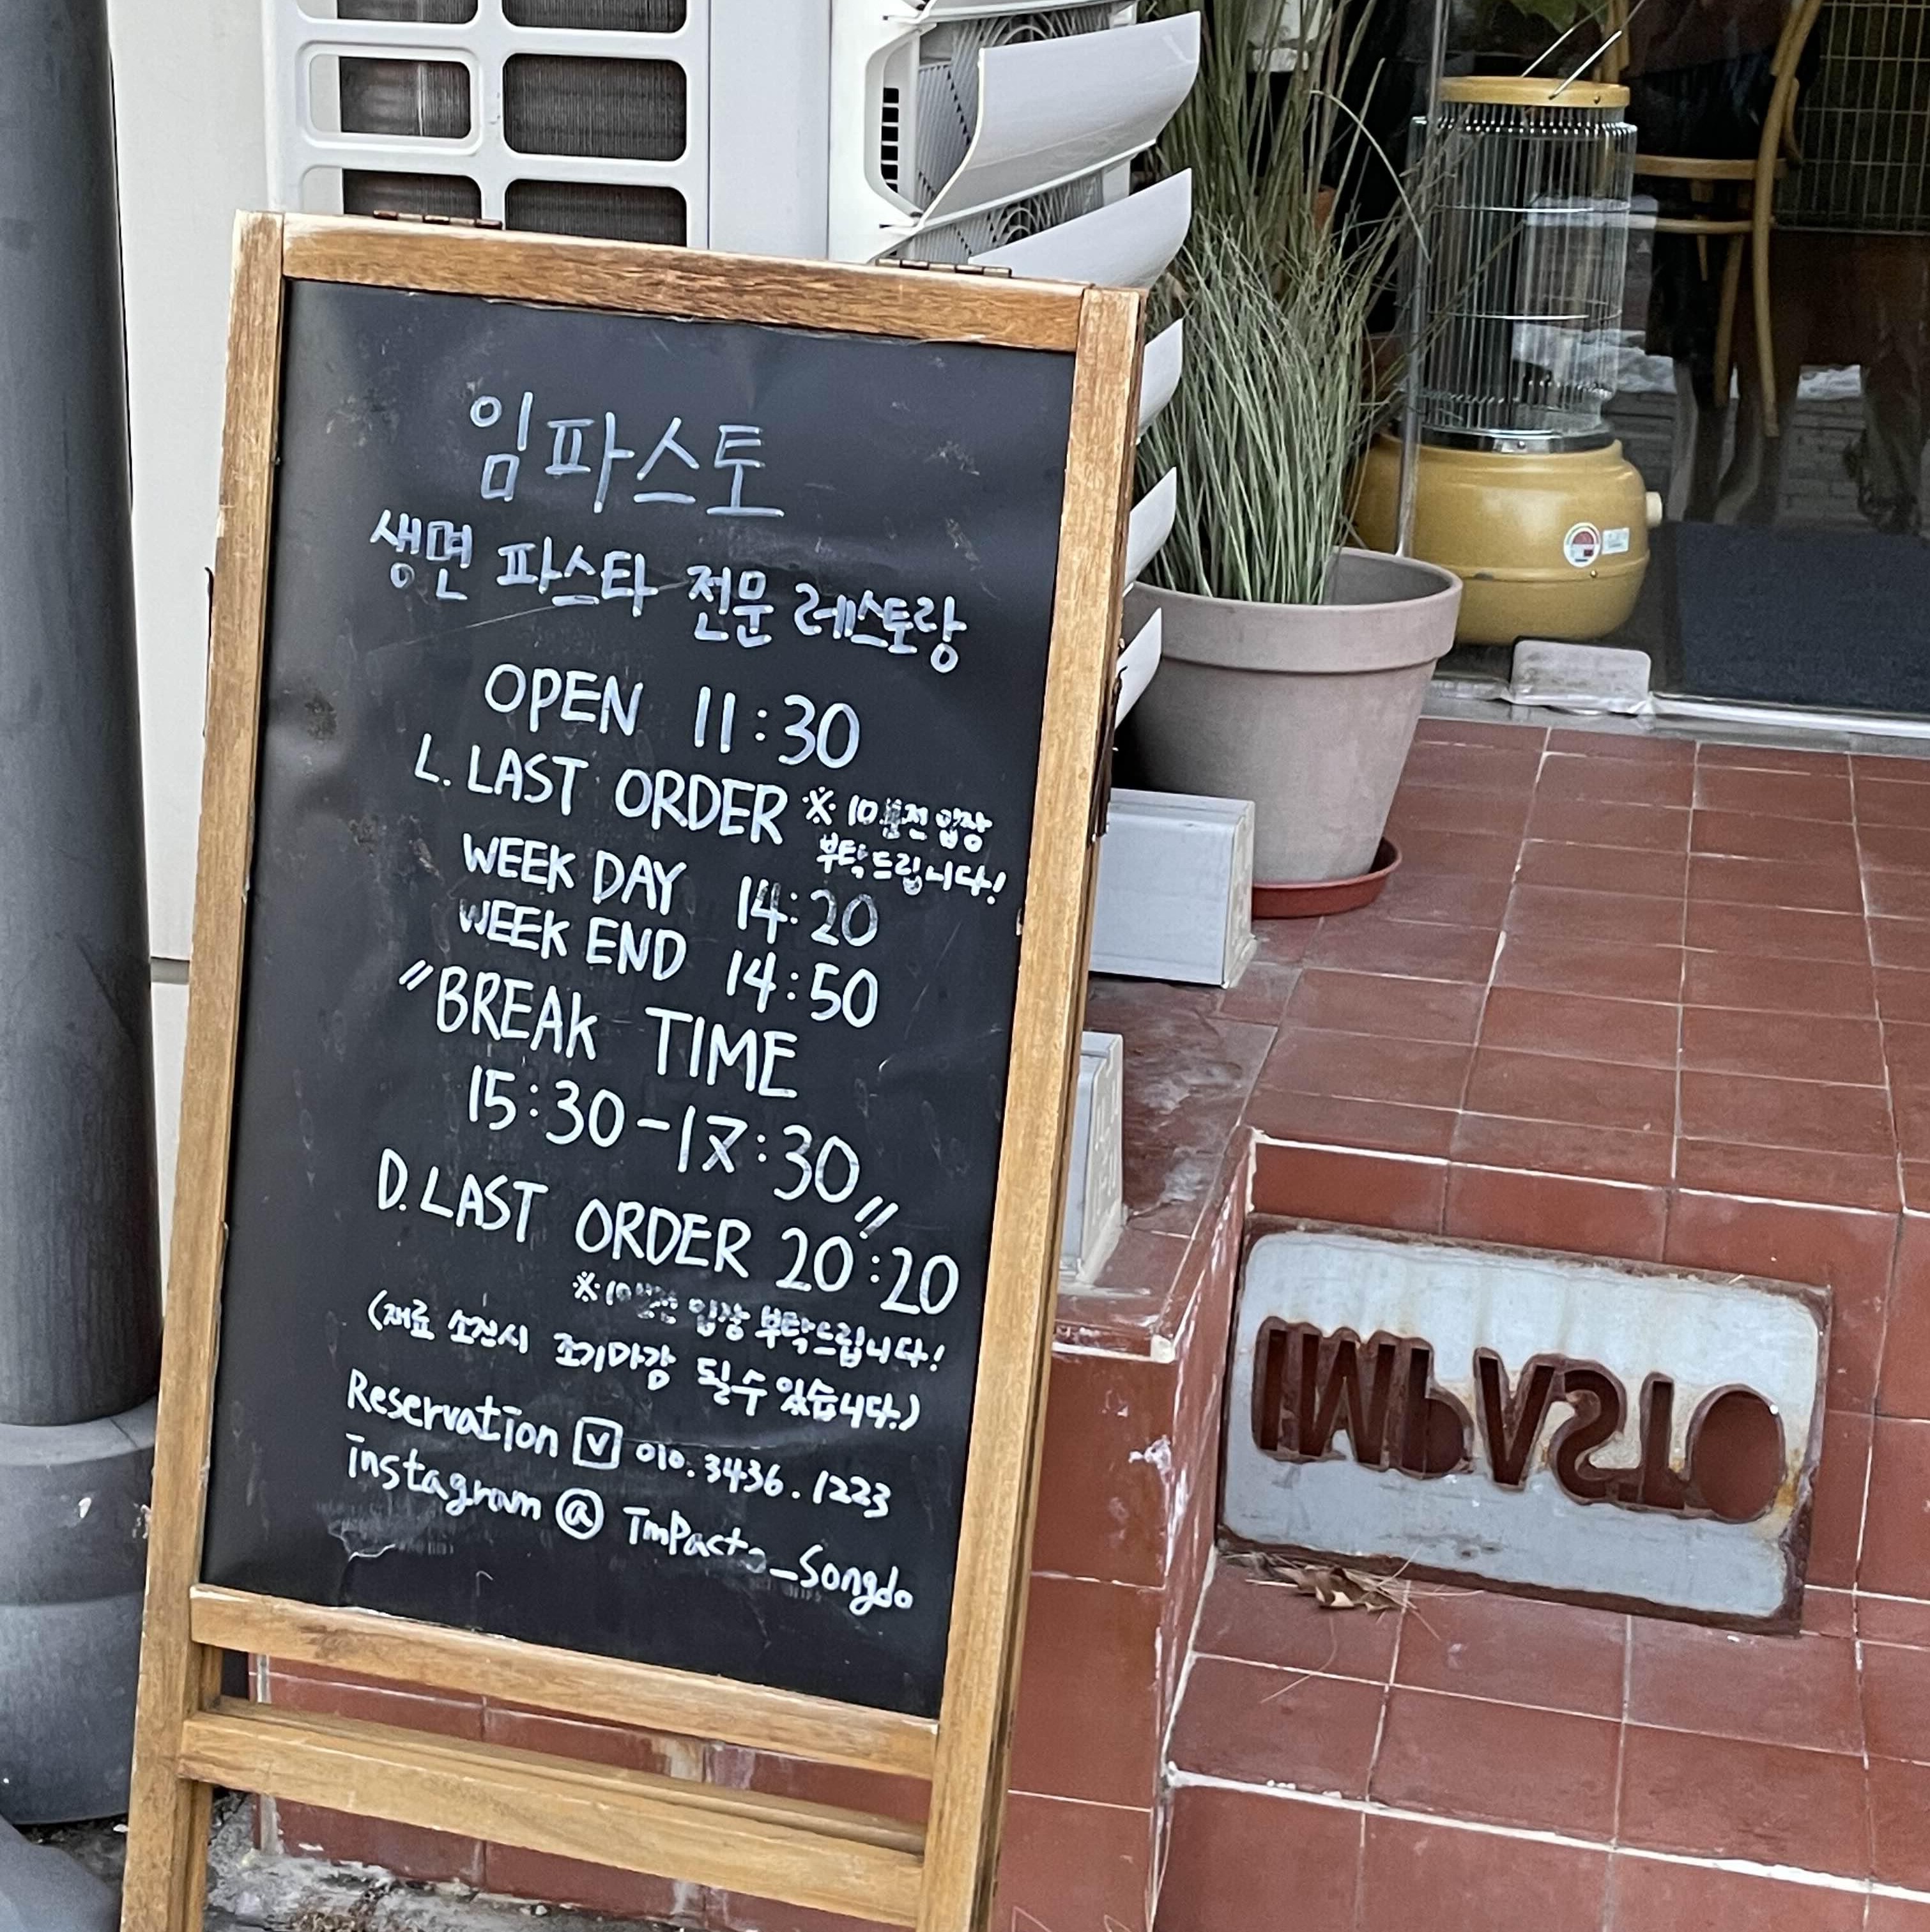 임파스토
생면 파스타 전문 레스토랑
OPEN 11:30
L. LAST ORDER ※ 10분전 입장
부탁드립니다!
WEEK DAY 14:20
WEEK END 14:50
〃BREAK TIME
15:30-17:30〃
D. LAST ORDER 20:20
※10분전 입장 부탁드립니다!
(재료 소진시 조기마감 될수 있습니다.)
Reservation V 010.3436.1223
instagram @ ImPasto_Songdo
IMPASTO